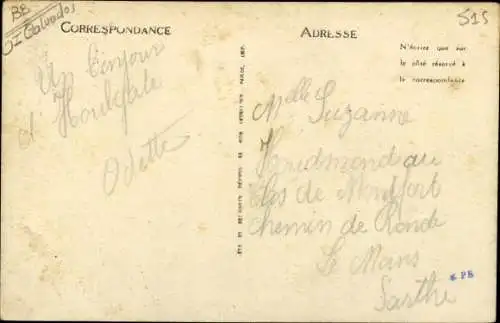 BB
OI Calvados
515
CORRESPONDANCE
Un bonjour
d'Houlgate
Odette
ADRESSE
N'écrire que sur
le côté réservé à
la correspondance
Melle Suzanne
au
Clos de Montfort
Chemin de Ronde
Le Mans
Sarthe